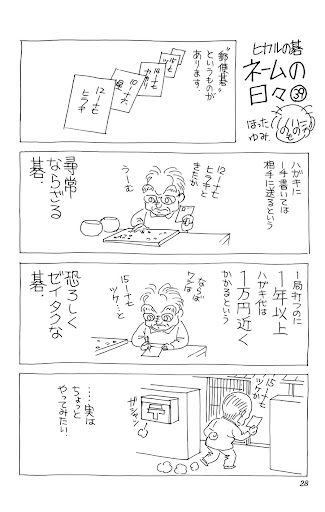 ヒカルの碁
ネームの
日々㊴
ほった
ゆみ
"郵便碁"
というものが
あります。
15-十七
カカリ
10-十六
12-十七
ヒラキ
ハガキに
一手書いては
相手に送るという
12-十七
ヒラキと
きたか
うーむ
尋常
ならざる
碁.
1局打つのに
1年以上
ハガキ代は
1万円近く
かかるという
ならば
ワシは
15-十七
ツケ…と
恐ろしく
ゼイタクな
碁.
15-十七
ツケか
ガシャン
……実は
ちょっと
やってみたい!
28